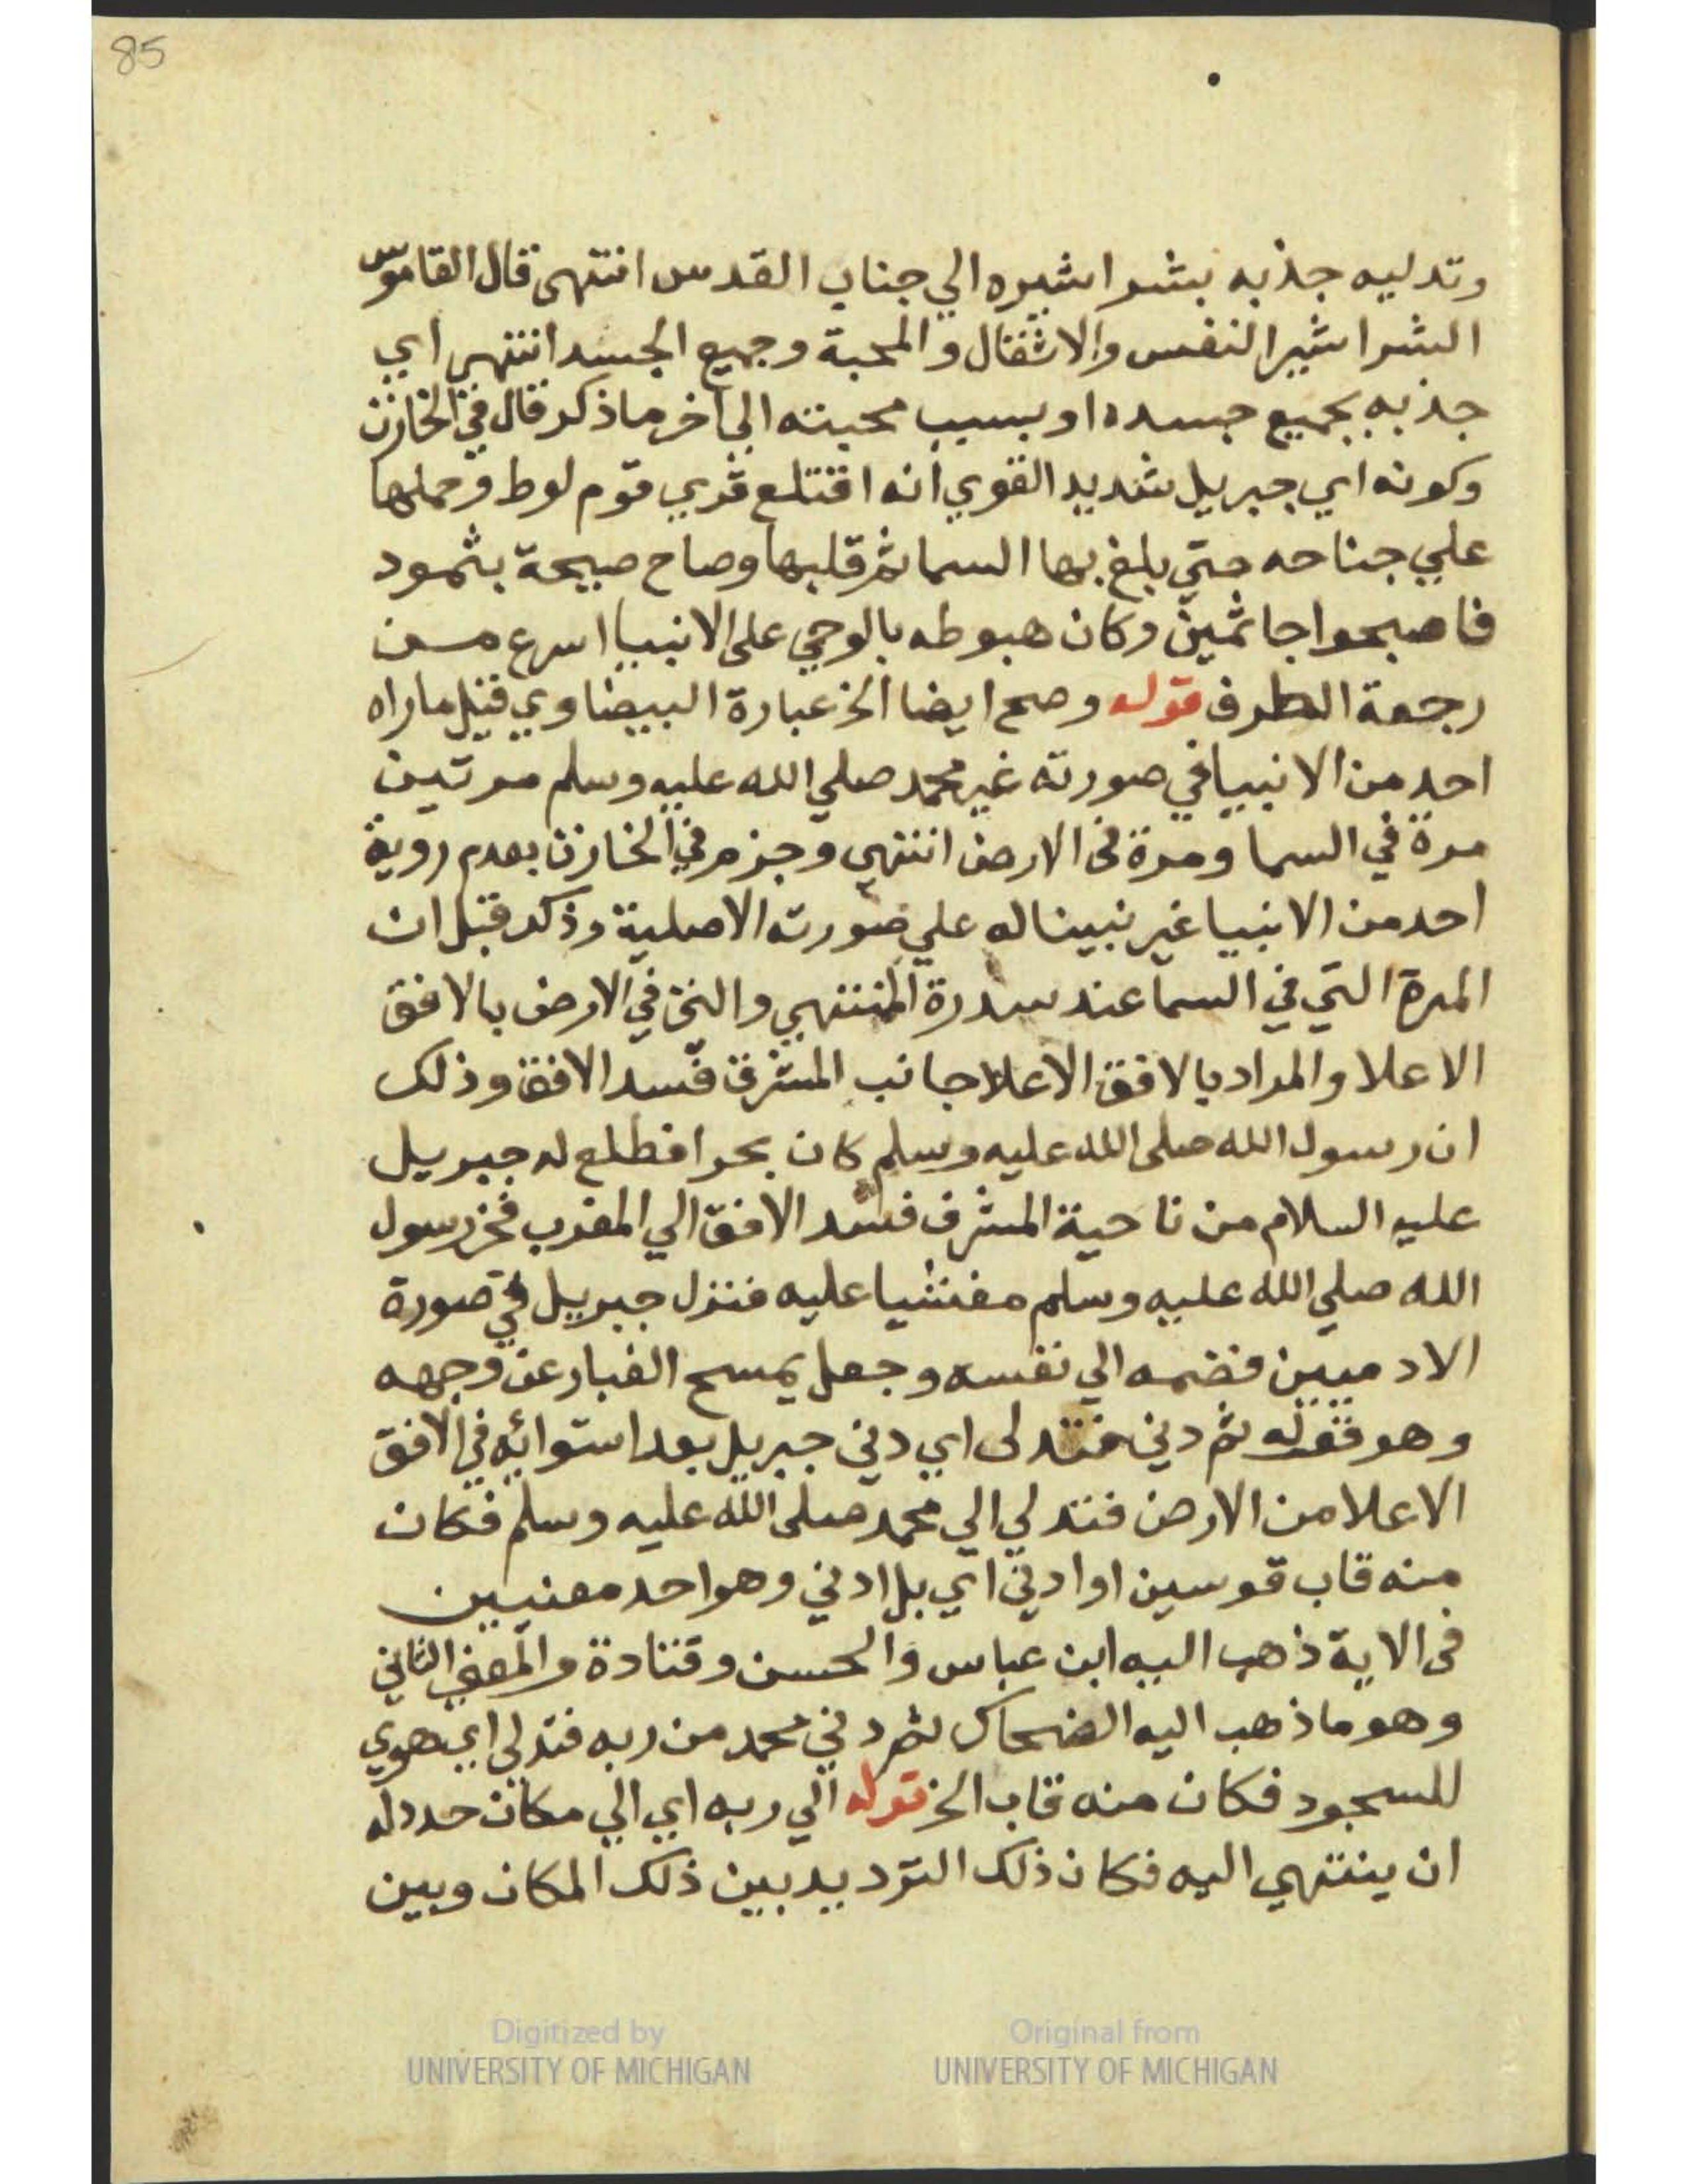 85
وتدليه جذبه بشراشيره الي جناب القدس انتهى قال القاموس
الشراشير النفس والاثقال والمحبة وجميع الجسد انتهى اي
جذبه بجميع جسده او بسبب محبته الي اخر ما ذكر قال في الخازن
وكونه اي جبريل شديد القوي انه اقتلع قري قوم لوط وحملها
علي جناحه حتي بلغ بها السما ثم قلبها وصاح صيحة بثمود
فاصبحوا جاثمين وكان هبوطه بالوحي على الانبيا اسرع من
رجعة الطرف قوله وصح ايضا الخ عبارة البيضاوي قيل ما راه
احد من الانبيا في صورته غير محمد صلي الله عليه وسلم مرتين
مرة في السما ومرة في الارض انتهي وجزم في الخازن بعدم روية
احد من الانبيا غير نبينا له علي صورته الاصلية وذكر قبل ان
المرة التي في السما عند سدرة المنتهي والتي في الارض بالافق
الاعلا والمراد بالافق الاعلا جانب المشرق فسد الافق وذلك
ان رسول الله صلى الله عليه وسلم كان بحرا فطلع له جبريل
عليه السلام من ناحية المشرق فسد الافق الي المغرب فخر رسول
الله صلي الله عليه وسلم مغشيا عليه فنزل جبريل في صورة
الادميين فضمه الي نفسه وجعل يمسح الغبار عن وجهه
وهو قوله ثم دني فتدلى اي دني جبريل بعد استوائه في الافق
الاعلا من الارض فتدلي الي محمد صلى الله عليه وسلم فكان
منه قاب قوسين او ادني اي بل ادني وهو احد معنيين
في الاية ذهب اليه ابن عباس والحسن وقتادة والمعني الثاني
وهو ما ذهب اليه الضحاك ثم دني محمد من ربه فتدلي اي هوي
للسجود فكان منه قاب الخ قوله الي ربه اي الي مكان حدد له
ان ينتهي اليه فكان ذلك الترديد بين ذلك المكان وبين
Digitized by
UNIVERSITY OF MICHIGAN
Original from
UNIVERSITY OF MICHIGAN